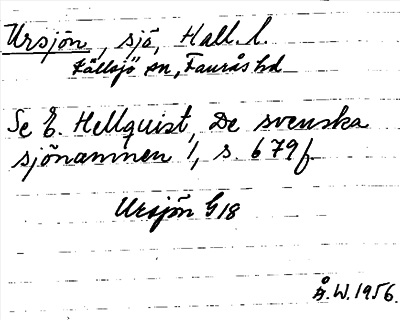 Ursjön, sjö, Hall. l.
Källsjö sn, Faurås hd
Se E. Hellquist, De svenska
sjönamnen 1, s 679f
Ursjön G18
Å.W.1956.